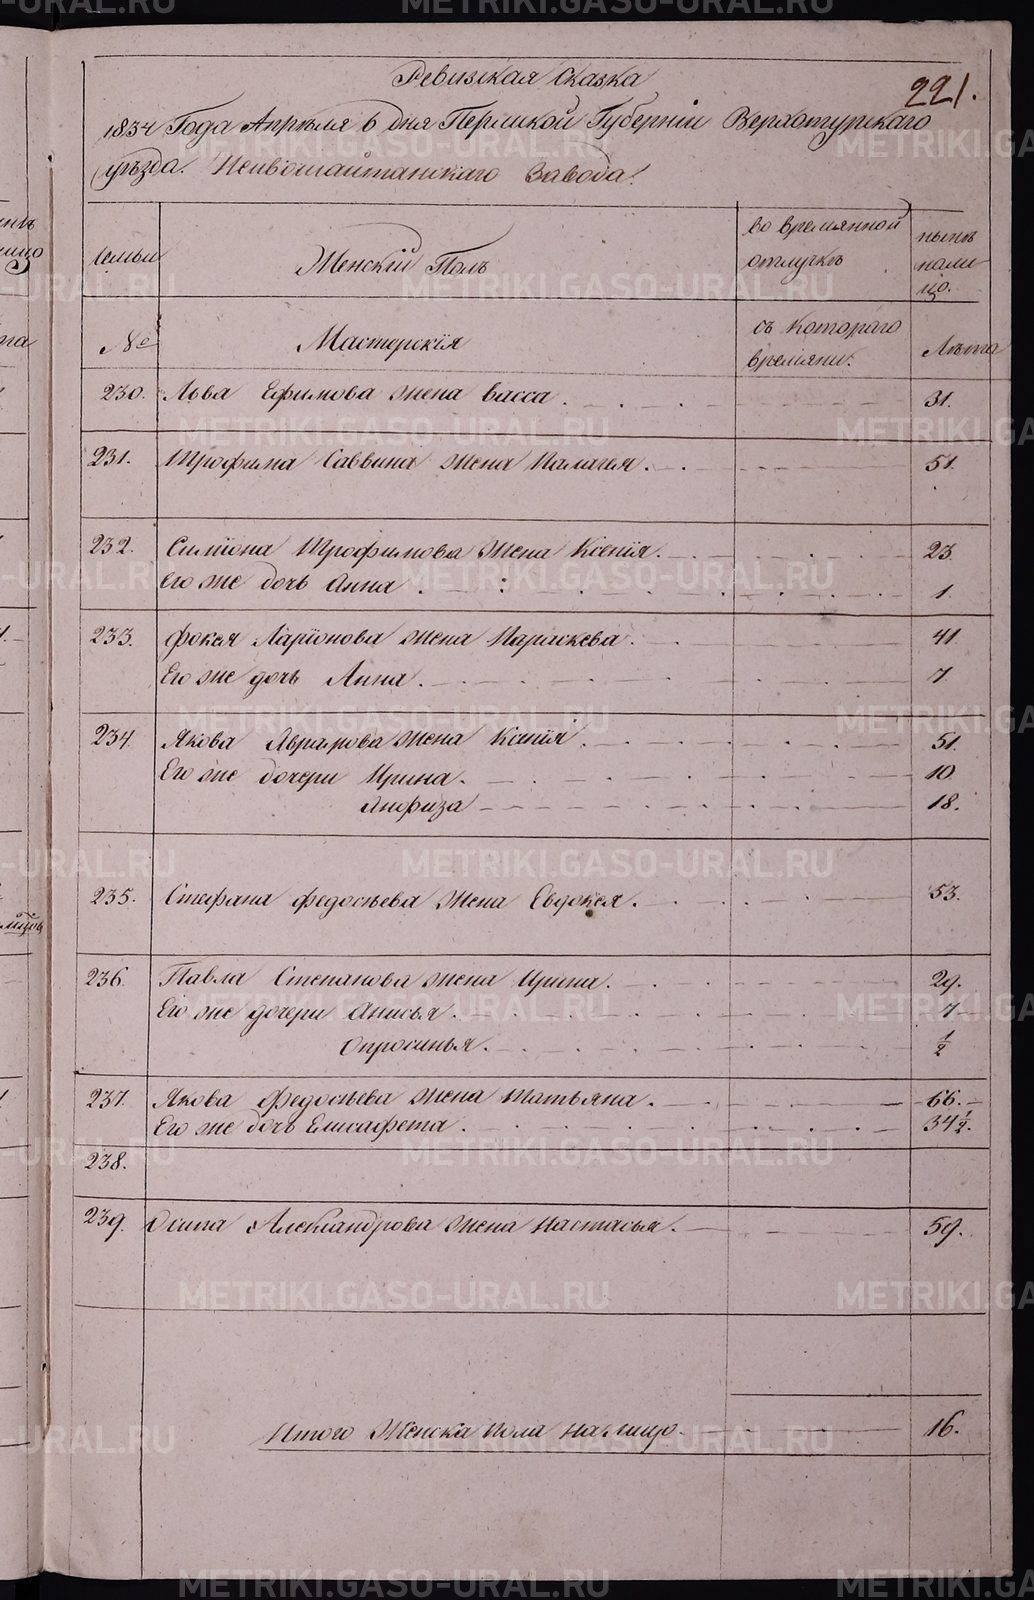 221.
Ревизская Сказка
1834 Года Апреля 6 дня Пермской Губернiи Верхотурскаго
уезда. Невьошайтанскаго Завода.
Семьи
Женскiй Полъ
во времянной отлучкъ
нынъ налицо.
№
Мастерскiя
съ котораго времяни.
Лъта
230. Льва Ефимова жена Васса. 31.
231. Трофима Саввина жена Палагея. 51.
232. Симiона Трофимова жена Ксенiя. 23
Его же дочь Анна. 1.
233. Фокея Ларiонова жена Параскева. 41
Его же дочь Анна. 7
234. Якова Аврамова жена Ксенiя. 51.
Его же дочери Ирина. 10
Анфиза 18.
235. Стефана Федосъева жена Евдокея. 53.
236. Павла Степанова жена Ирина. 29.
Его же дочери Анисья. 7
Опросинья. 1/2
237. Якова Федосъева жена Татьяна. 66.
Его же дочь Елисафета. 34 1/2.
238.
239. Осипа Александрова жена Настасья. 59.
Итого Женска пола налицо. 16.
METRIKI.GASO-URAL.RU